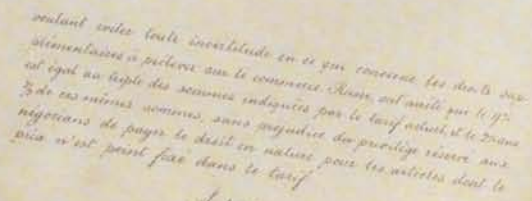 voulant éviter toute incertitude en ce qui concerne les droits sup-
plémentaires à prélever sur le commerce Russe, ont arrêté que le
est égal au triple des sommes indiquées par le tarif actuel, et le
de ces mêmes sommes, sans préjudice du privilège réservé aux
négocians de payer le droit en nature pour les articles dont le
prix n'est point fixé dans le tarif